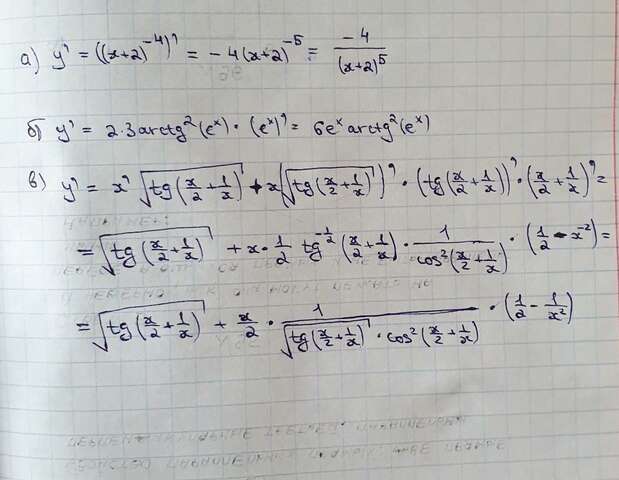 а) y' = ((x+2)⁻⁴)' = -4(x+2)⁻⁵ = -4/(x+2)⁵
б) y' = 2·3arctg²(eˣ)·(eˣ)' = 6eˣ arctg²(eˣ)
в) y' = x' √(tg(x/2 + 1/x)) + x(√(tg(x/2 + 1/x)))' · (tg(x/2 + 1/x))' · (x/2 + 1/x)' =
= √(tg(x/2 + 1/x)) + x · 1/2 tg^(-1/2)(x/2 + 1/x) · 1/cos²(x/2 + 1/x) · (1/2 - x⁻²) =
= √(tg(x/2 + 1/x)) + x/2 · 1/(√(tg(x/2 + 1/x)) · cos²(x/2 + 1/x)) · (1/2 - 1/x²)